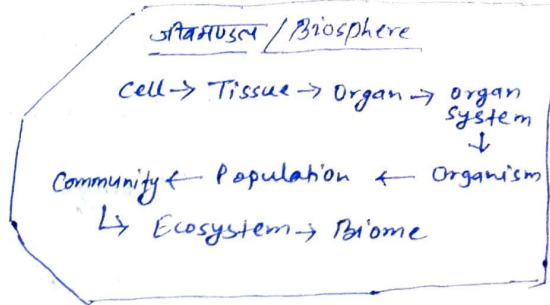 जीवमण्डल / Biosphere
Cell → Tissue → Organ → organ
system
↓
Community ← Population ← Organism
↳ Ecosystem → Biome